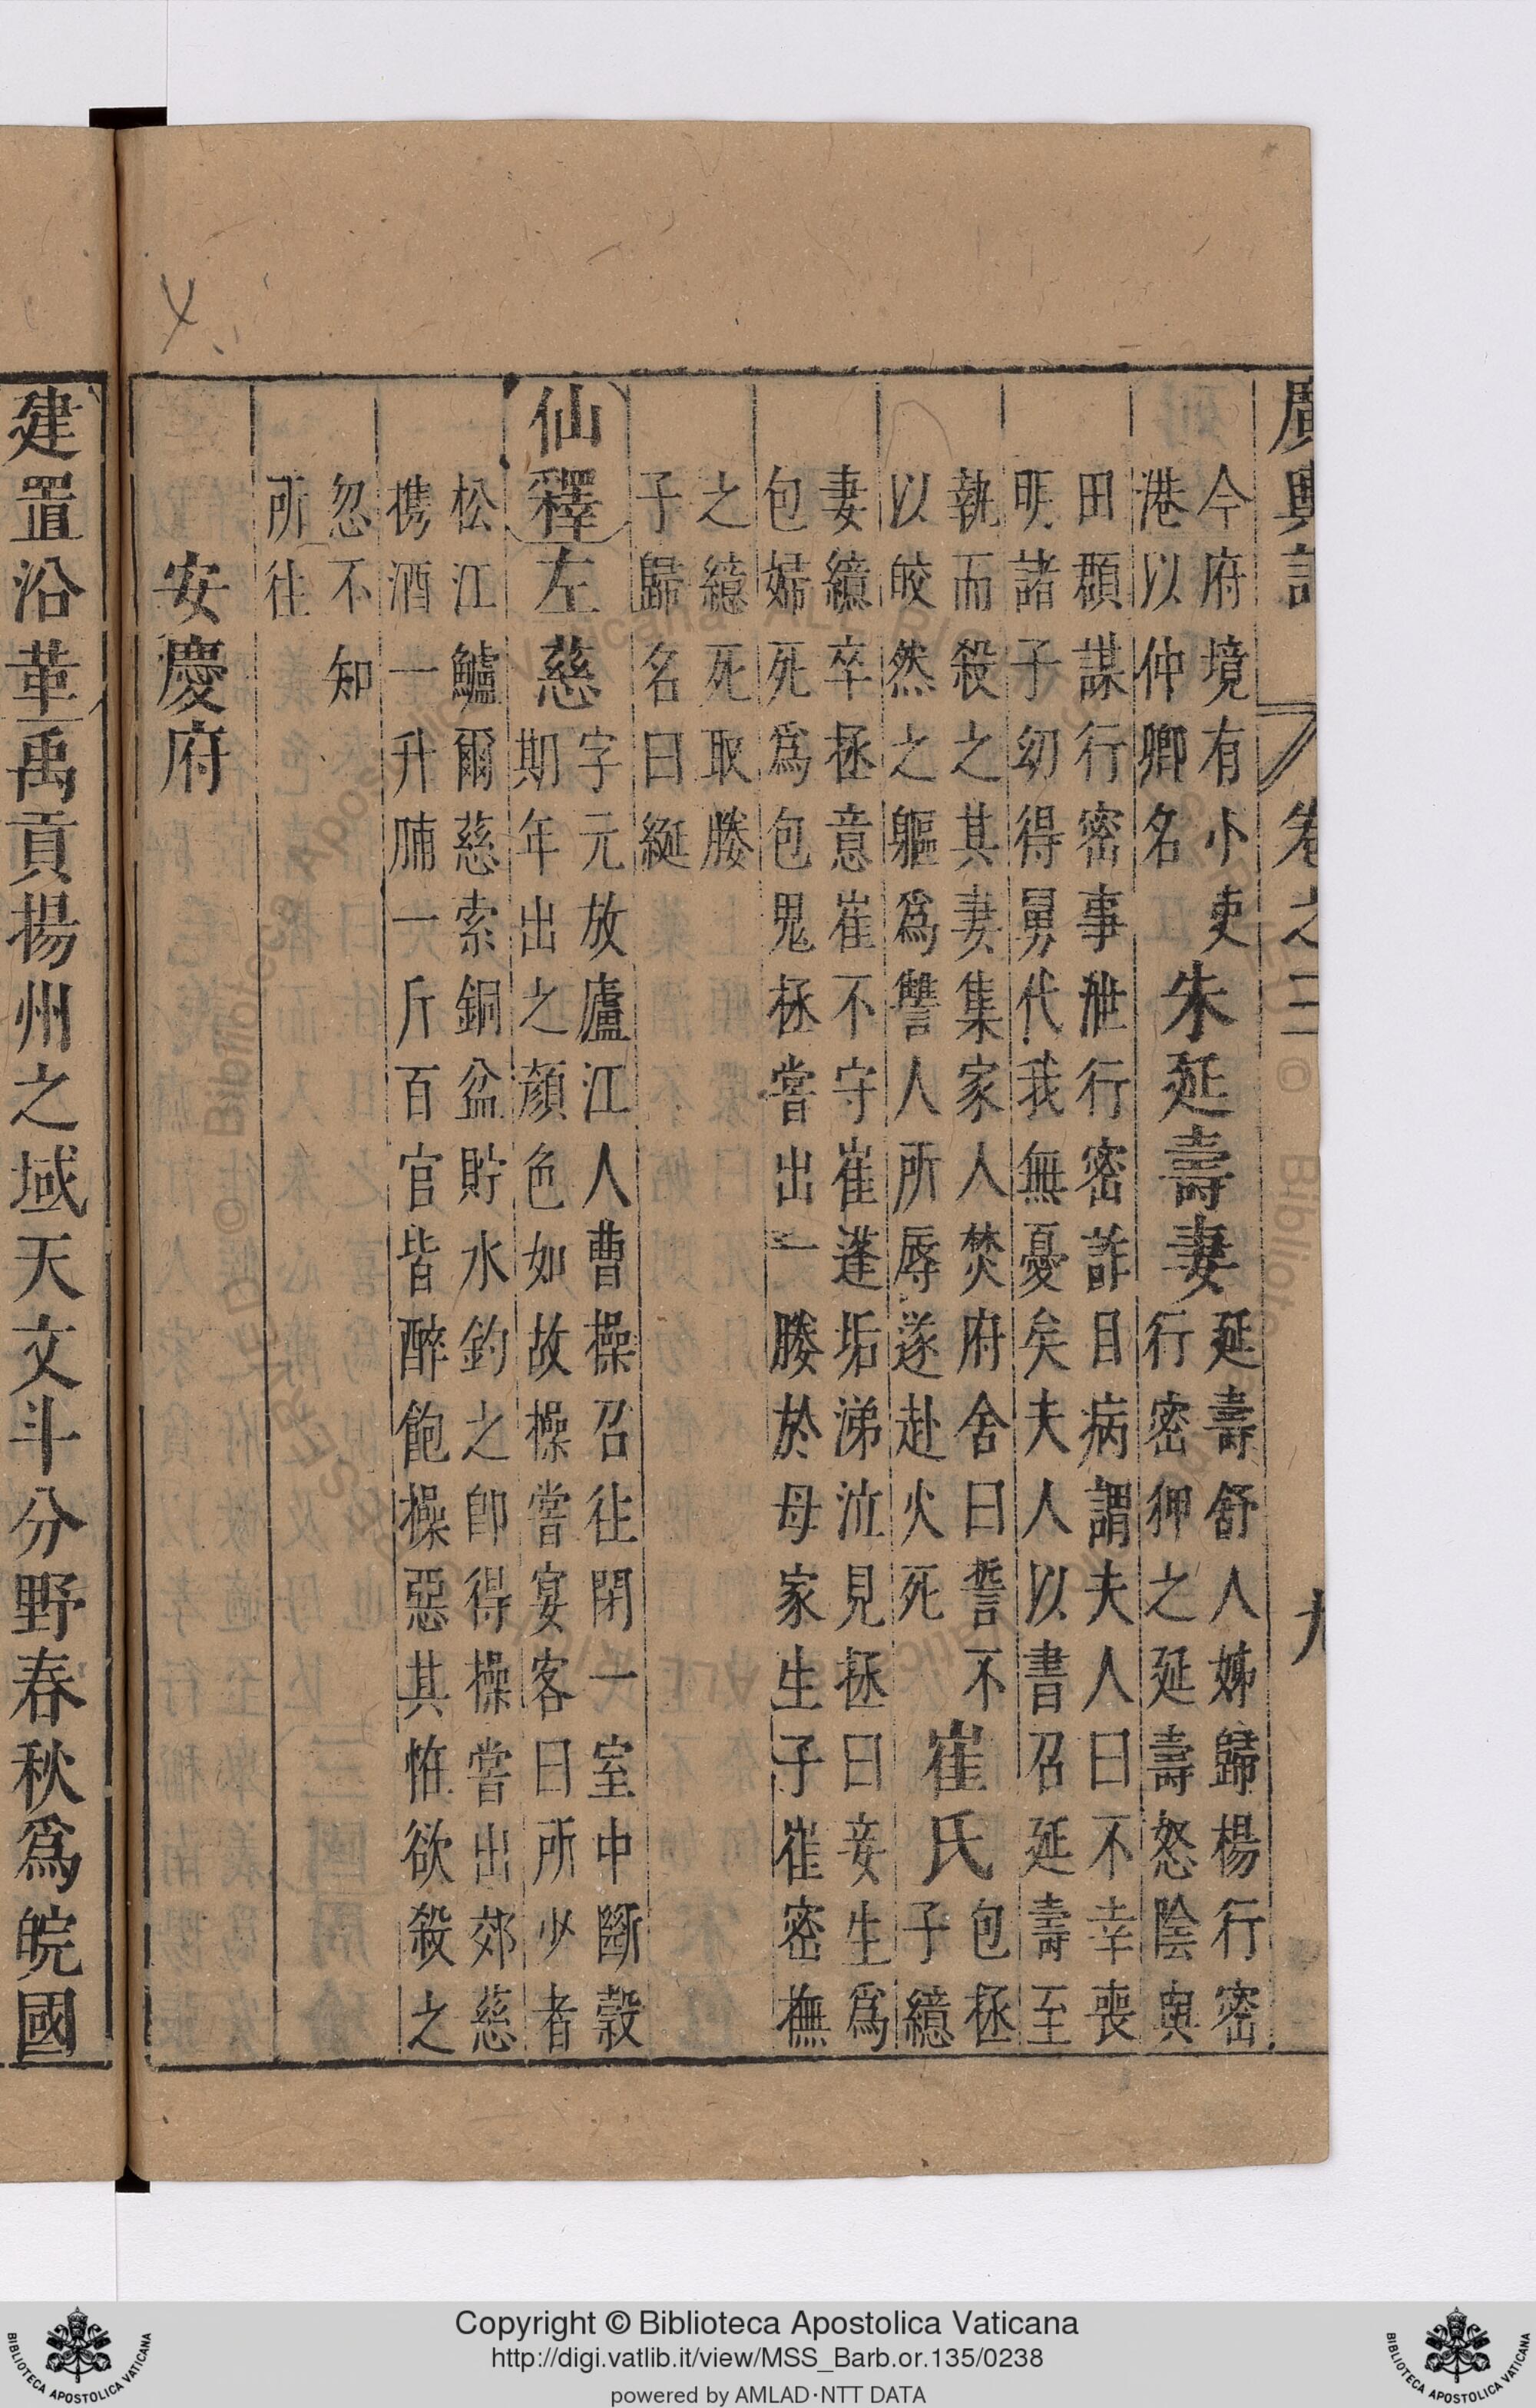 廣輿記 卷之三 九
今府境有小吏
港以仲卿名
朱延壽妻
延壽舒人姊歸楊行密
行密狎之延壽怒陰與
田頵謀行密事泄行密詐目病謂夫人曰不幸喪
明諸子幼得舅代我無憂矣夫人以書召延壽至
執而殺之其妻集家人焚府舍曰誓不
以皎然之軀爲讐人所辱遂赴火死
崔氏
包拯
子繶
妻繶卒拯意崔不守崔蓬垢涕泣見拯曰妾生爲
包婦死爲包鬼拯嘗出一媵於母家生子崔密撫
之繶死取媵
子歸名曰綖
仙釋
左慈
字元放廬江人曹操召往閉一室中斷穀
期年出之顏色如故操嘗宴客曰所少者
松江鱸爾慈索銅盆貯水釣之卽得操嘗出郊慈
携酒一升脯一斤百官皆醉飽操惡其恠欲殺之
忽不知
所往
安慶府
建置沿革禹貢揚州之域天文斗分野春秋爲皖國
Copyright © Biblioteca Apostolica Vaticana
http://digi.vatlib.it/view/MSS_Barb.or.135/0238
powered by AMLAD·NTT DATA
BIBLIOTECA APOSTOLICA VATICANA
BIBLIOTECA APOSTOLICA VATICANA